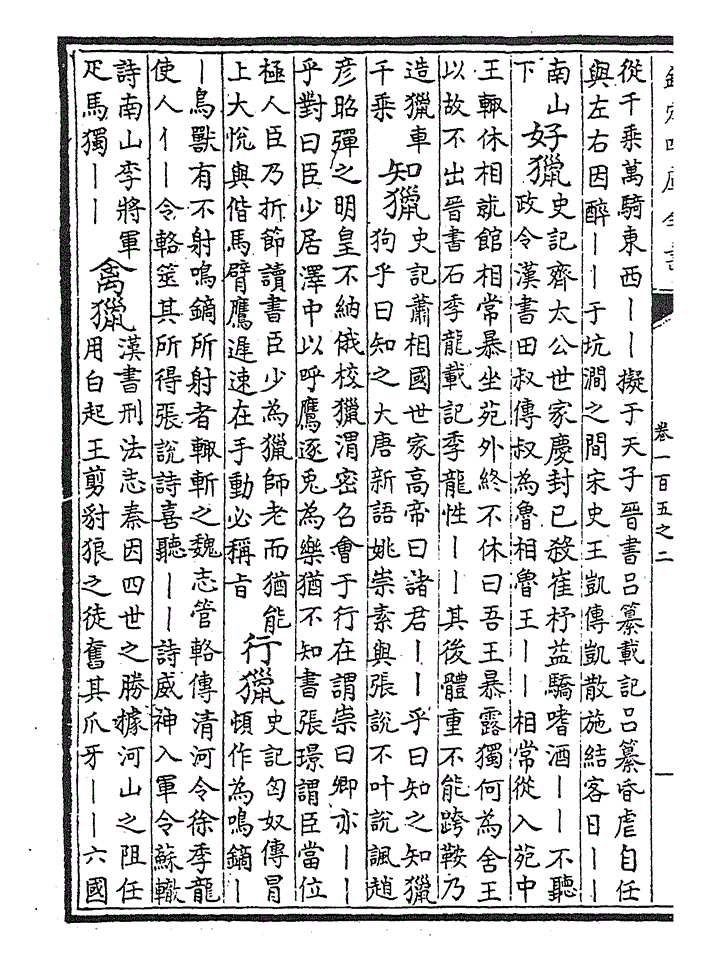 欽定四庫全書
卷一百五之二
一
從千乘萬騎東西丨丨擬于天子晉書吕纂載記吕纂昏虐自任
與左右因醉丨丨于坑澗之間宋史王凱傳凱散施結客日丨丨
南山
下
好獵
史記齊太公世家慶封已殺崔杼益驕嗜酒丨丨不聽
政令漢書田叔傳叔為魯相魯王丨丨相常從入苑中
王輒休相就館相常暴坐苑外終不休曰吾王暴露獨何為舍王
以故不出晉書石季龍載記季龍性丨丨其後體重不能跨鞍乃
造獵車
千乘
知獵
史記蕭相國世家高帝曰諸君丨丨乎曰知之知獵
狗乎曰知之大唐新語姚崇素與張説不叶説諷趙
彦昭彈之明皇不納俄校獵渭密召會于行在謂崇曰卿亦丨丨
乎對曰臣少居澤中以呼鷹逐兎為樂猶不知書張璟謂臣當位
極人臣乃折節讀書臣少為獵師老而猶能
上大悦與偕馬臂鷹遲速在手動必稱旨
行獵
史記匈奴傳冒
頓作為鳴鏑丨
丨鳥獸有不射鳴鏑所射者輒斬之魏志管輅傳清河令徐季龍
使人亻丨丨令輅筮其所得張説詩喜聽丨丨詩威神入軍令蘇轍
詩南山李將軍
疋馬獨丨丨
禽獵
漢書刑法志秦因四世之勝據河山之阻任
用白起王剪豺狼之徒奮其爪牙丨丨六國